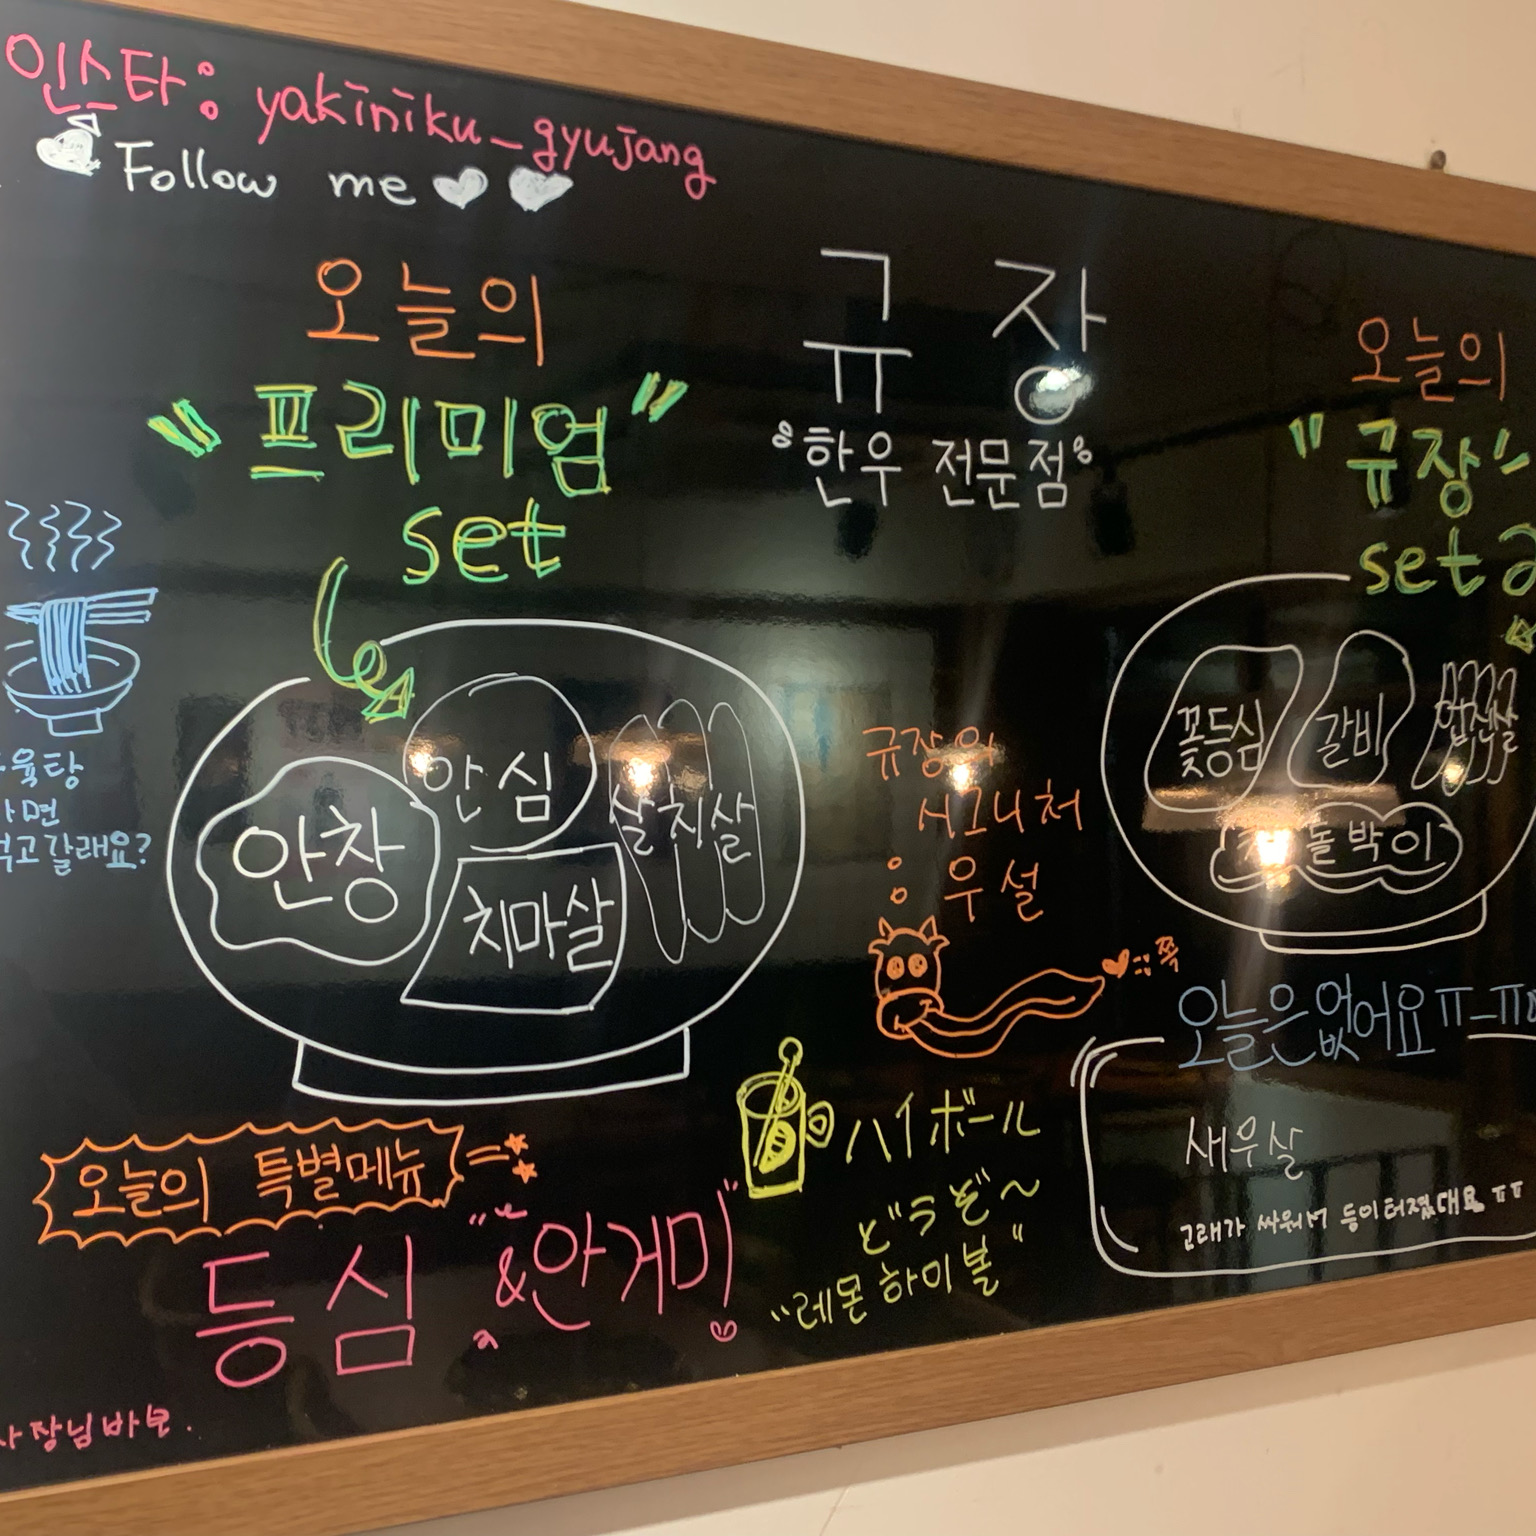 인스타: yakiniku_gyujang
Follow me
오늘의
"프리미엄"
set
안심
안창
살치살
치마살
규장
한우 전문점
오늘의
"규장"
set
꽃등심
갈비
업진살
차돌박이
육탕
라면
먹고갈래요?
규장의
시그니처
: 우설
쪽
오늘은없어요 ㅠ_ㅠ
새우살
고래가 싸워서 등이터졌대요 ㅠㅠ
오늘의 특별메뉴
등심 & 안거미
ハイボール
どうぞ~
"레몬 하이볼"
사장님바보.